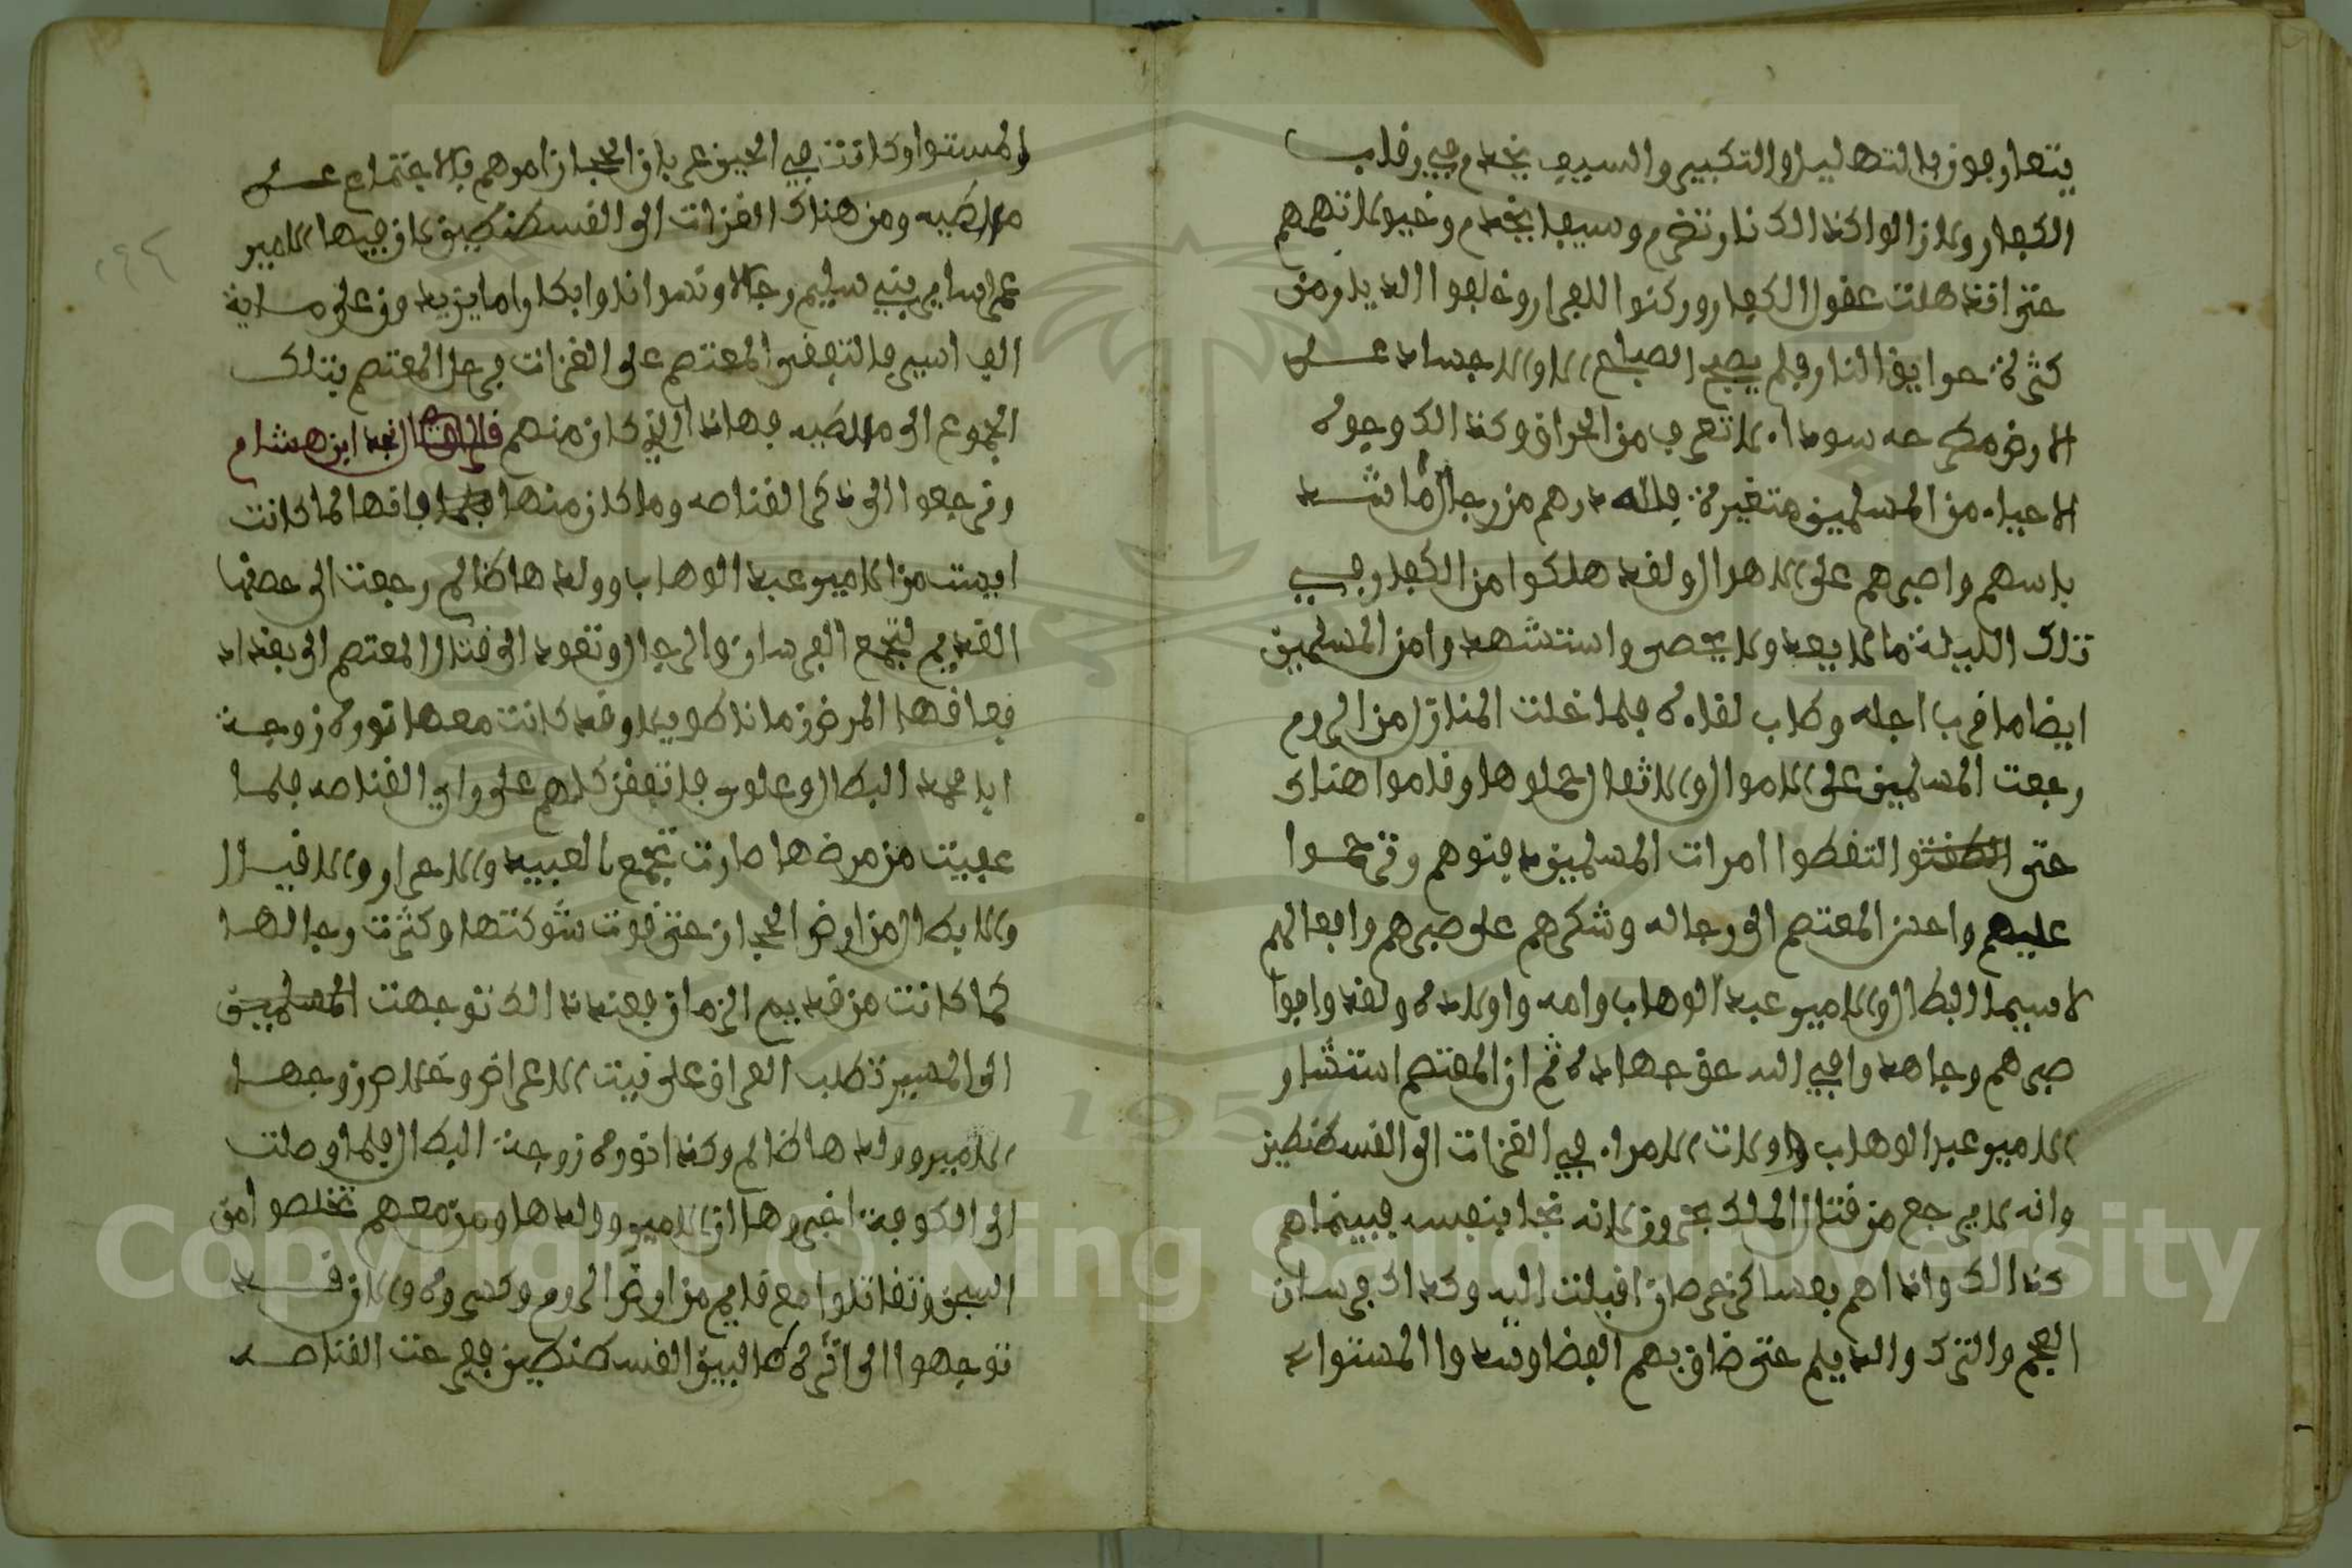 يتعارفون بالتهليل والتكبير والسيف يخدم في رقاب
الكفار ولا زالوا كذالك نار تضرم وسيف يخدم وخيول تهمهم
حتى اندهلت عقول الكفار وركنوا للفرار وخلفوا الديار من
كثرة حوايق النار فلم يصبح الصباح الا والاجساد على
الارض مطرحه سودا لا تعرف من الحراق وكذالك وجوه
الاحياء من المسلمين متغيرة فلله درهم من رجال ما اشد
باسهم واصبرهم على الاهوال ولقد هلكوا من الكفار في
تلك الليلة ما لا يعد ولا يحصى واستشهدوا من المسلمين
ايضا ما قرب اجله وطاب لقاه فلما خلت المنازل من الروم
رجعت المسلمين على الاموال والاثقال حملوها وقاموا هناك
حتى التقطوا امرات المسلمين دفنوهم وترحموا
عليهم واحسن المعتصم الى رجاله وشكرهم على صبرهم وافعالهم
لا سيما البطال والامير عبد الوهاب وامه واولاده ولقد وافوا
صبرهم وجاهدوا في الله حق جهاده ثم ان المعتصم استشار
الامير عبد الوهاب واولات الامراء في الغزات الى القسطنطين
وانه لا يرجع من قتال الملك حتى ولانه نجا بنفسه فبينما هم
كذالك واذاهم بعساكر خرصان اقبلت اليه وكذاك فرسان
العجم والترك والديلم حتى ضاق بهم الفضا وسدوا المستوا
والمستوا وكانت في الحين عربان الحجاز امرهم بالاجتماع على
ملاطيه ومن هناك الغزات الى القسطنطين لان فيها الامير
عمر اسارى بني سليم رجالا ونسوانا وابكار ما يزيدون على ماية
الف اسير فالتفق المعتصم على الغزات فرحل المعتصم بتلك
الجموع الى ملاطيه فهاذا الذي كان منهم قال نجد ابن هشام
ونرجعوا الى ذكر القناصه وما كان منها فانها لما كانت
ايست من الامير عبد الوهاب وولدها ظالم رجعت الى حصنها
القديم لتجمع الفرسان والرجال وتعود الى قتال المعتصم الى بغداد
فعاقها المرض زمانا طويلا وقد كانت معها نوره زوجة
ابا محمد البطال وعلوى فاتفقن كلهم على راي القناصه فلما
عفيت من مرضها صارت تجمع العبيد والاحرار والاقيال
والابطال من ارض الحجاز حتى قوت شوكتها وكثرت رجالها
كما كانت من قديم الزمان فعند ذالك توجهت المسلمين
الى المسير تطلب العراق على نيت الاعراض وخلاص زوجها
الامير وولدها ظالم وكذا نوره زوجة البطال فلما وصلت
الى الكوفة اخبروها ان الامير وولدها ومن معهم تخلصوا من
السجن وتقاتلوا مع قايم من ارض الروم وكسروه والان قد
توجهوا الى اثره طالبين القسطنطين ففرحت القناصه